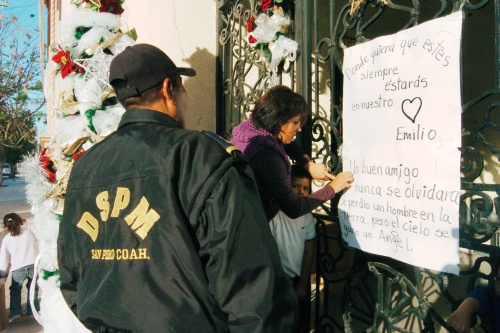 Donde quiera que estés
siempre
estarás
en nuestro ♡
Emilio
Un buen amigo
nunca se olvidara
se perdio un hombre en la
tierra, pero el cielo se
gano un Angel.
DSPM
SAN PEDRO COAH.